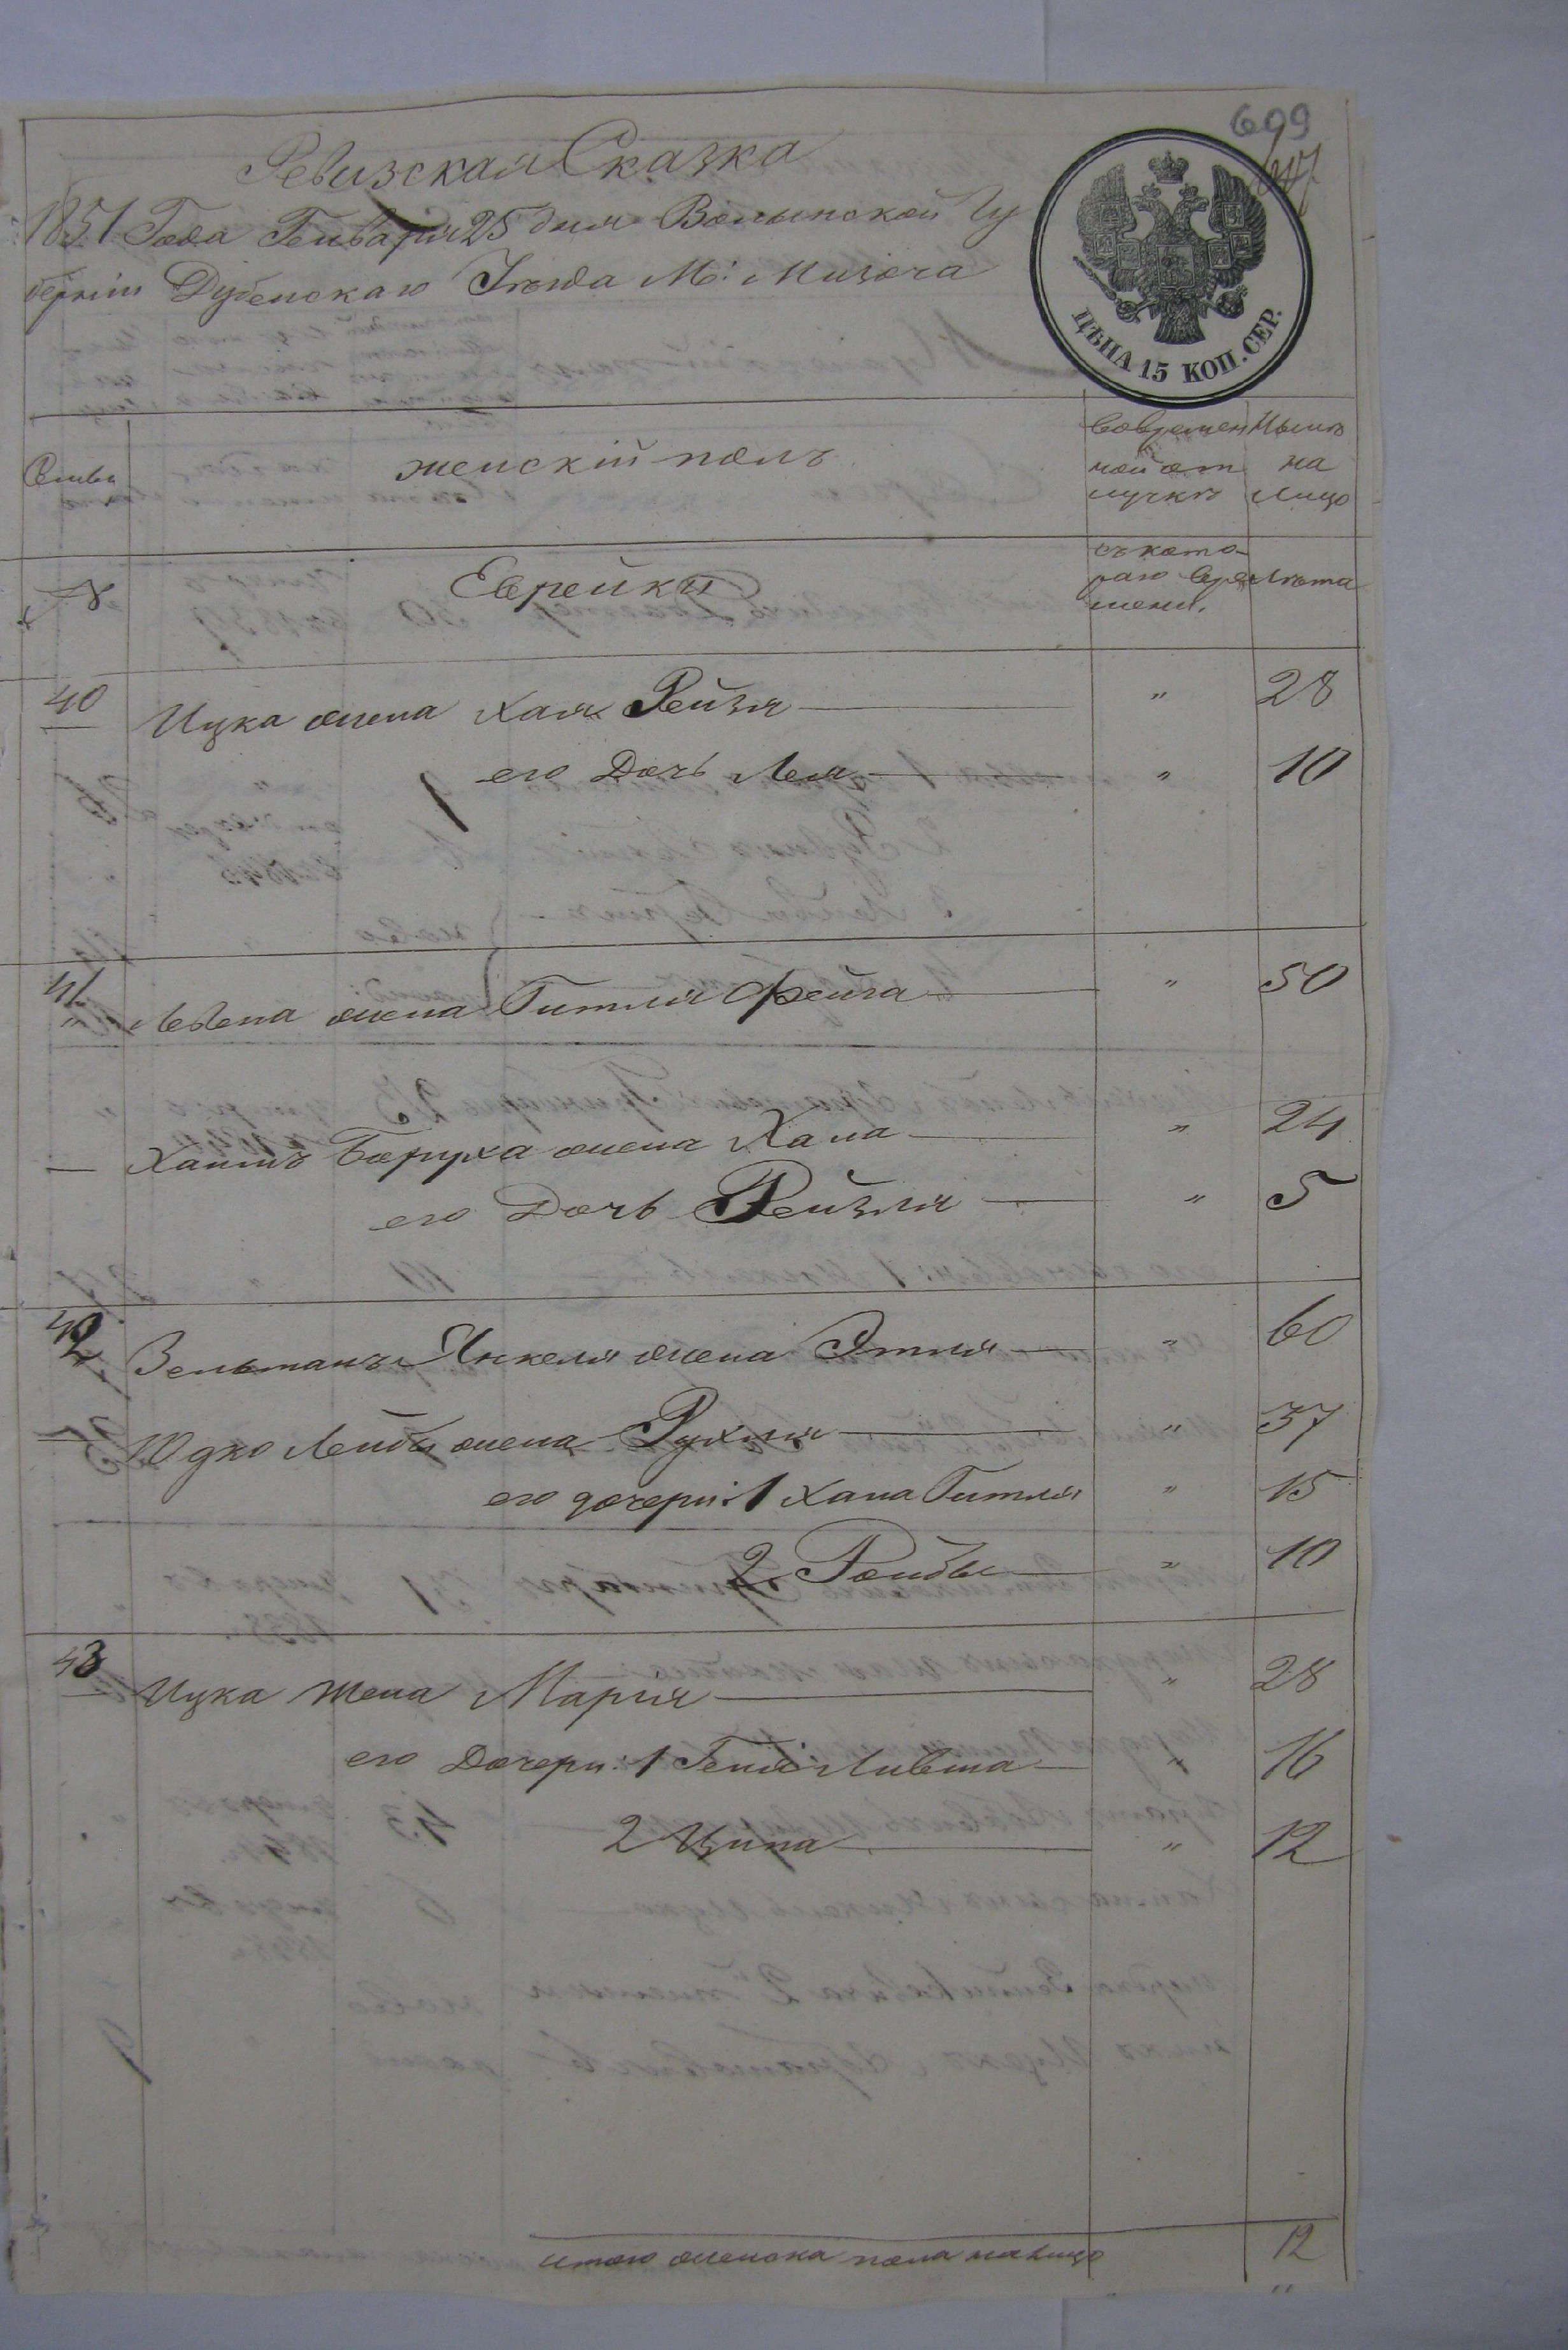 609
Ревизская Сказка
1851 Года Генваря 25 дня Волынской Гу
берніи Дубенскаго Уѣзда М: Мизоча
ЦѢНА 15 КОП. СЕР.
женскій полъ
Во времен
ной от
лучкѣ
Нынѣ
на
Лицо
Семьи
№
Еврейки
съ кото-
раго вре
мени.
Лѣта
40 Ицка жена Хая Рейзя " 28
его Дочь Лея " 10
41 Лейбы жена Гитля Фейга " 50
Хаимъ Боруха жена Хана " 24
его Дочь Рейзля " 5
42 Зельманъ Янкеля жена Этля " 60
Юдко Лейбы жена Рухля " 37
его дочери: 1 Хана Гитля " 15
2 Ройды " 10
43 Ицка жена Марія " 28
его Дочери: 1 Геня Лившa " 16
2 Ципа " 12
итого женска пола на лицо 12